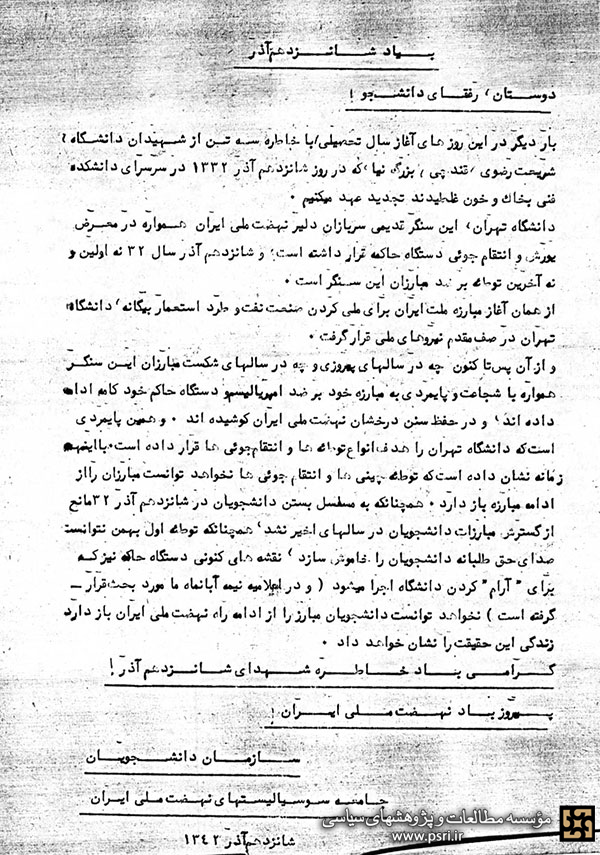 بیاد شانزدهم آذر
دوستان، رفقای دانشجو !
بار دیگر در این روزهای آغاز سال تحصیلی، با خاطره سه تن از شهیدان دانشگاه،
شریعت رضوی، قندچی، بزرگ نیا، که در روز شانزدهم آذر ۱۳۳۲ در سرسرای دانشکده
فنی بخاک و خون غلطیدند تجدید عهد میکنیم ۰
دانشگاه تهران، این سنگر قدیمی سربازان دلیر نهضت ملی ایران همواره در معرض
یورش و انتقام جوئی دستگاه حاکمه قرار داشته است، و شانزدهم آذر سال ۳۲ نه اولین و
نه آخرین توطئه بر ضد مبارزان این سنگر است ۰
از همان آغاز مبارزه ملت ایران برای ملی کردن صنعت نفت و طرد استعمار بیگانه، دانشگاه
تهران در صف مقدم نیروهای ملی قرار گرفت ۰
و از آن پس تا کنون چه در سالهای پیروزی و چه در سالهای شکست مبارزان این سنگر
همواره با شجاعت و پایمردی به مبارزه خود بر ضد امپریالیسم و دستگاه حاکم خود کامه ادامه
داده اند، و در حفظ سنن درخشان نهضت ملی ایران کوشیده اند ۰ و همین پایمردی
است که دانشگاه تهران را هدف انواع توطئه ها و انتقام جوئی ها قرار داده است۰ با اینهمه
زمانه نشان داده است که توطئه چینی ها و انتقام جوئی ها نخواهد توانست مبارزان را از
ادامه مبارزه باز دارد ۰ همچنانکه به مسلسل بستن دانشجویان در شانزدهم آذر ۳۲ مانع
از گسترش مبارزات دانشجویان در سالهای اخیر نشد، همچنانکه توطئه اول بهمن نتوانست
صدای حق طلبانه دانشجویان را خاموش سازد، نقشه های کنونی دستگاه حاکمه نیز که
برای "آرام" کردن دانشگاه اجرا میشود ( و در اعلامیه نیمه آبانماه ما مورد بحث قرار ـ
گرفته است ) نخواهد توانست دانشجویان مبارز را از ادامه راه نهضت ملی ایران باز دارد
زندگی این حقیقت را نشان خواهد داد ۰
گرامی باد خاطره شهدای شانزدهم آذر !
پیروز باد نهضت ملی ایران !
سازمان دانشجویان
جامعه سوسیالیستهای نهضت ملی ایران
شانزدهم آذر ۱۳۴۲
مؤسسه مطالعات و پژوهشهای سیاسی
www.psri.ir